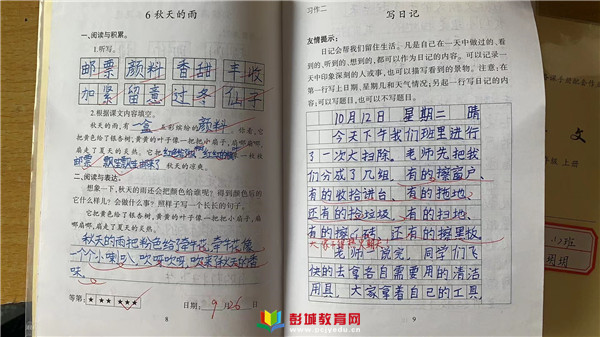 6 秋天的雨
一、阅读与积累。
1.听写。
邮票 颜料 香甜 丰收
加紧 留意 过冬 仙子
2.根据课文内容填空。
秋天的雨,有一盒五彩缤纷的颜料。你看,它
把黄色给了银杏树,黄黄的叶子像一把把小扇子,扇哪扇哪,
扇走了夏天的炎热。它把红色给了枫树,红红的枫叶像一枚枚
邮票,飘哇飘哇,邮来了秋天的凉爽。
二、阅读与表达。
想象一下,秋天的雨还会把颜色给谁呢?得到颜色后的
它什么样儿?会做什么事?照样子写一个长长的句子。
它把黄色给了银杏树,黄黄的叶子像一把把小扇子,扇
哪扇哪,扇走了夏天的炎热。
秋天的雨把粉色给了牵牛花,牵牛花像
一个个小喇叭,吹呀吹呀,吹来了秋天的香
味。
等第:★ ★★ ★★★
日期:9月26日
8
习作二
写日记
友情提示:
日记会帮我们留住生活。凡是自己在一天中做过的、看
到的、听到的、想到的,都可以作为日记的内容。可以记录一
天中印象深刻的人或事,也可以描写看到的景物。注意:在
第一行写上日期、星期几和天气情况;另起一行写日记的内
容;可以写题目,也可以不写题目。
10月12日 星期二 晴
今天下午我们班里进行
了一次大扫除。老师先把我
们分成了几组,有的擦窗户、
有的收拾讲台、有的拖地、
还有的捡垃圾、有的扫地、
有的擦瓷砖、还有的擦黑板。
老师一说完,同学们飞
快的去拿各自需要用的清洁
用具。大家拿着自己的工具,
9
文
年级 上册
彭城教育网
www.pcjyedu.cn